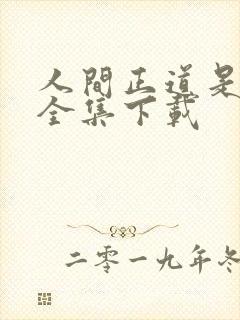 人間正道是
全集下載
二零一九年冬